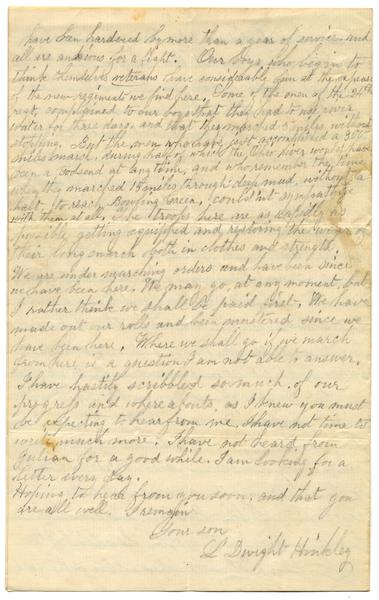 have been hardened by more than a year of service and
all are anxious for a fight. Our boys who begin to
think themselves veterans have considerable fun at the expense
of the new regiments we find here. Some of the men of the 94th
regt. complained to our boys that they had to use river
water for three days, and that they marched 5 miles without
stopping. But the men who have just accomplished a 300
miles march, during half of which the Ohio river would have
been a Godsend at any time, and who remember the time
when they marched 15 miles through deep mud, without a
halt to reach Bowling Green, couldn't sympathize
with them at all. The troops here are as rapidly as
possible getting equipped and repairing the wear of
their long march both in clothes and strength.
We are under marching orders and have been since
we have been here. We may go, at any moment, but
I rather think we shall be paid first. We have
made out our rolls and been mustered since we
have been here. Where we shall go if we march
from here is a question I am not able to answer.
I have hastily scribbled so much of our
progress and whereabouts, as I knew you must
be expecting to hear from me. I have not time to
write much more. I have not heard from
Julian for a good while. I am looking for a
letter every day.
Hoping to hear from you soon, and that you
are all well. I remain
Your son
L Dwight Hinkley